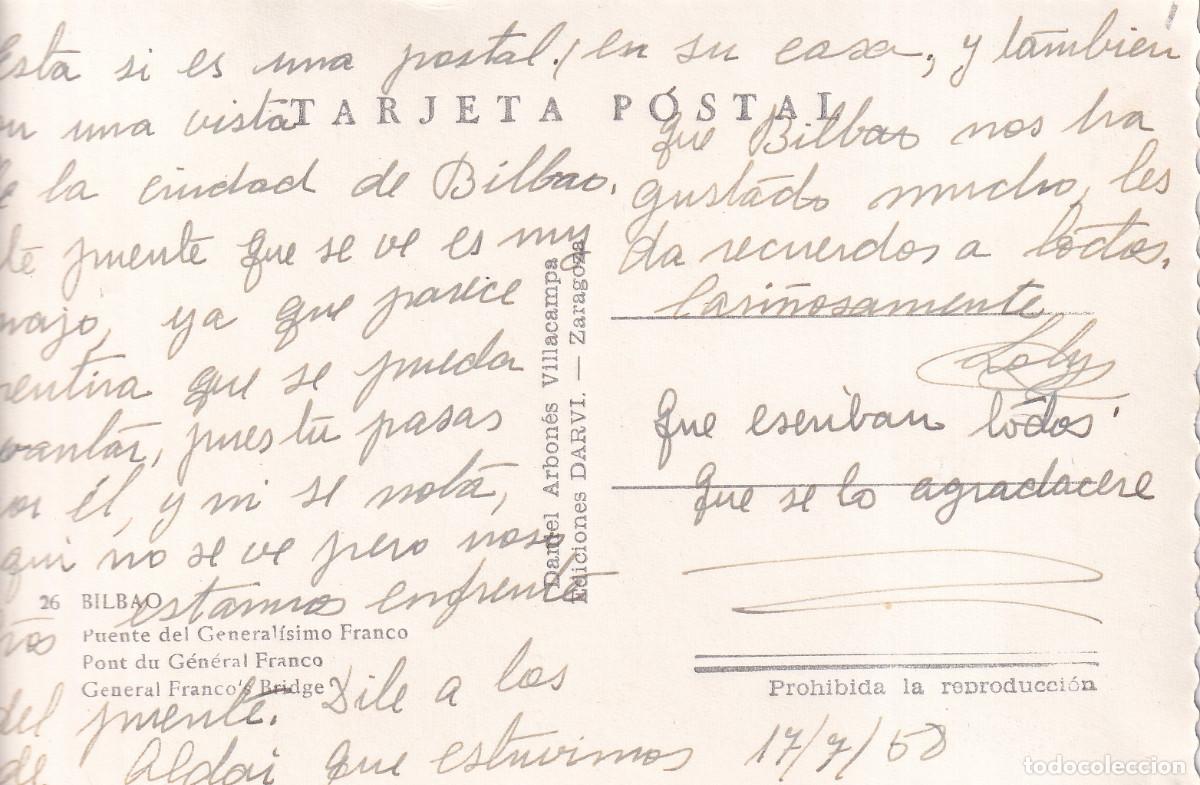 Esta si es una postal,
on una vista
e la ciudad de Bilbao.
te puente que se ve es muy
najo, ya que parece
entira que se pueda
vantar, pues tu pasas
or él, y ni se nota,
qui no se ve pero noso
ros estamos enfrente
del puente. Dile a los
de Aldai que estuvimos
en su casa, y también
que Bilbao nos ha
gustado mucho, les
da recuerdos a todos.
Cariñosamente
Loly
Que escriban todos
que se lo agradacere
17/7/58
TARJETA POSTAL
Daniel Arbonés Villacampa
Ediciones DARVI. — Zaragoza
26 BILBAO
Puente del Generalísimo Franco
Pont du Général Franco
General Franco's Bridge
Prohibida la reproducción
todocoleccion